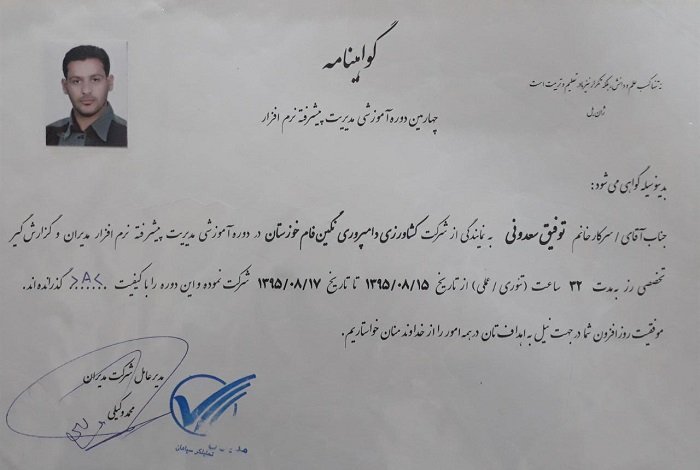 گواهینامه
نه تنها کسب علم و دانش بلکه تکرار نیز بنیاد تعلیم و تربیت است
ژان پل
چهارمین دوره آموزشی مدیریت پیشرفته نرم افزار
بدینوسیله گواهی می شود:
جناب آقای / سرکار خانم توفیق سعدونی به نمایندگی از شرکت کشاورزی دامپروری نگین فام خوزستان در دوره آموزشی مدیریت پیشرفته نرم افزار مدیران و گزارش گیر
تخصصی رز به مدت ۳۲ ساعت (تئوری / عملی) از تاریخ ۱۳۹۵/۰۸/۱۵ تا تاریخ ۱۳۹۵/۰۸/۱۷ شرکت نموده و این دوره را با کیفیت >A< گذرانده اند.
موفقیت روز افزون شما در جهت نیل به اهداف تان در همه امور را از خداوند منان خواستاریم.
مدیر عامل شرکت مدیران
محمد وکیلی